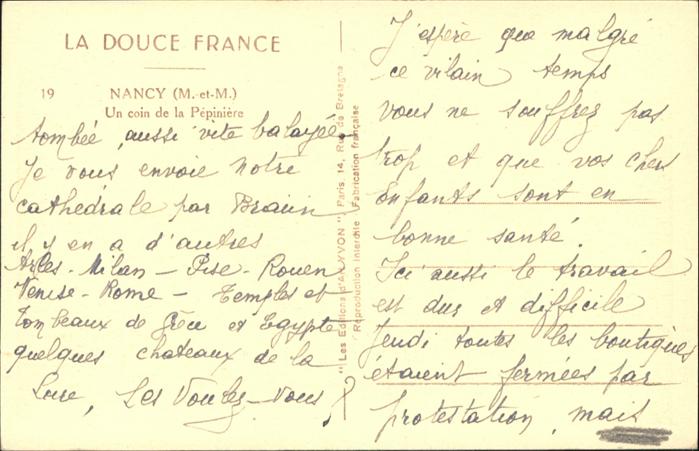 LA DOUCE FRANCE
19 NANCY (M.-et-M.)
Un coin de la Pépinière
tombée, aussi vite balayée.
Je vous envoie notre
cathédrale par Braun
il y en a d'autres
Arles - Milan - Pise - Rouen
Venise - Rome - Temples et
Tombeaux de Grèce et Egypte
quelques chateaux de la
Loire, Les Voulez-vous ?
"Les Editions d'Art YVON" Paris, 14, Rue de Bretagne
Reproduction interdite Fabrication française
J'espère que malgré
ce vilain temps
vous ne souffrez pas
trop et que vos chers
enfants sont en
bonne santé.
Ici aussi le travail
est dur et difficile
Jeudi toutes les boutiques
étaient fermées par
protestation, mais